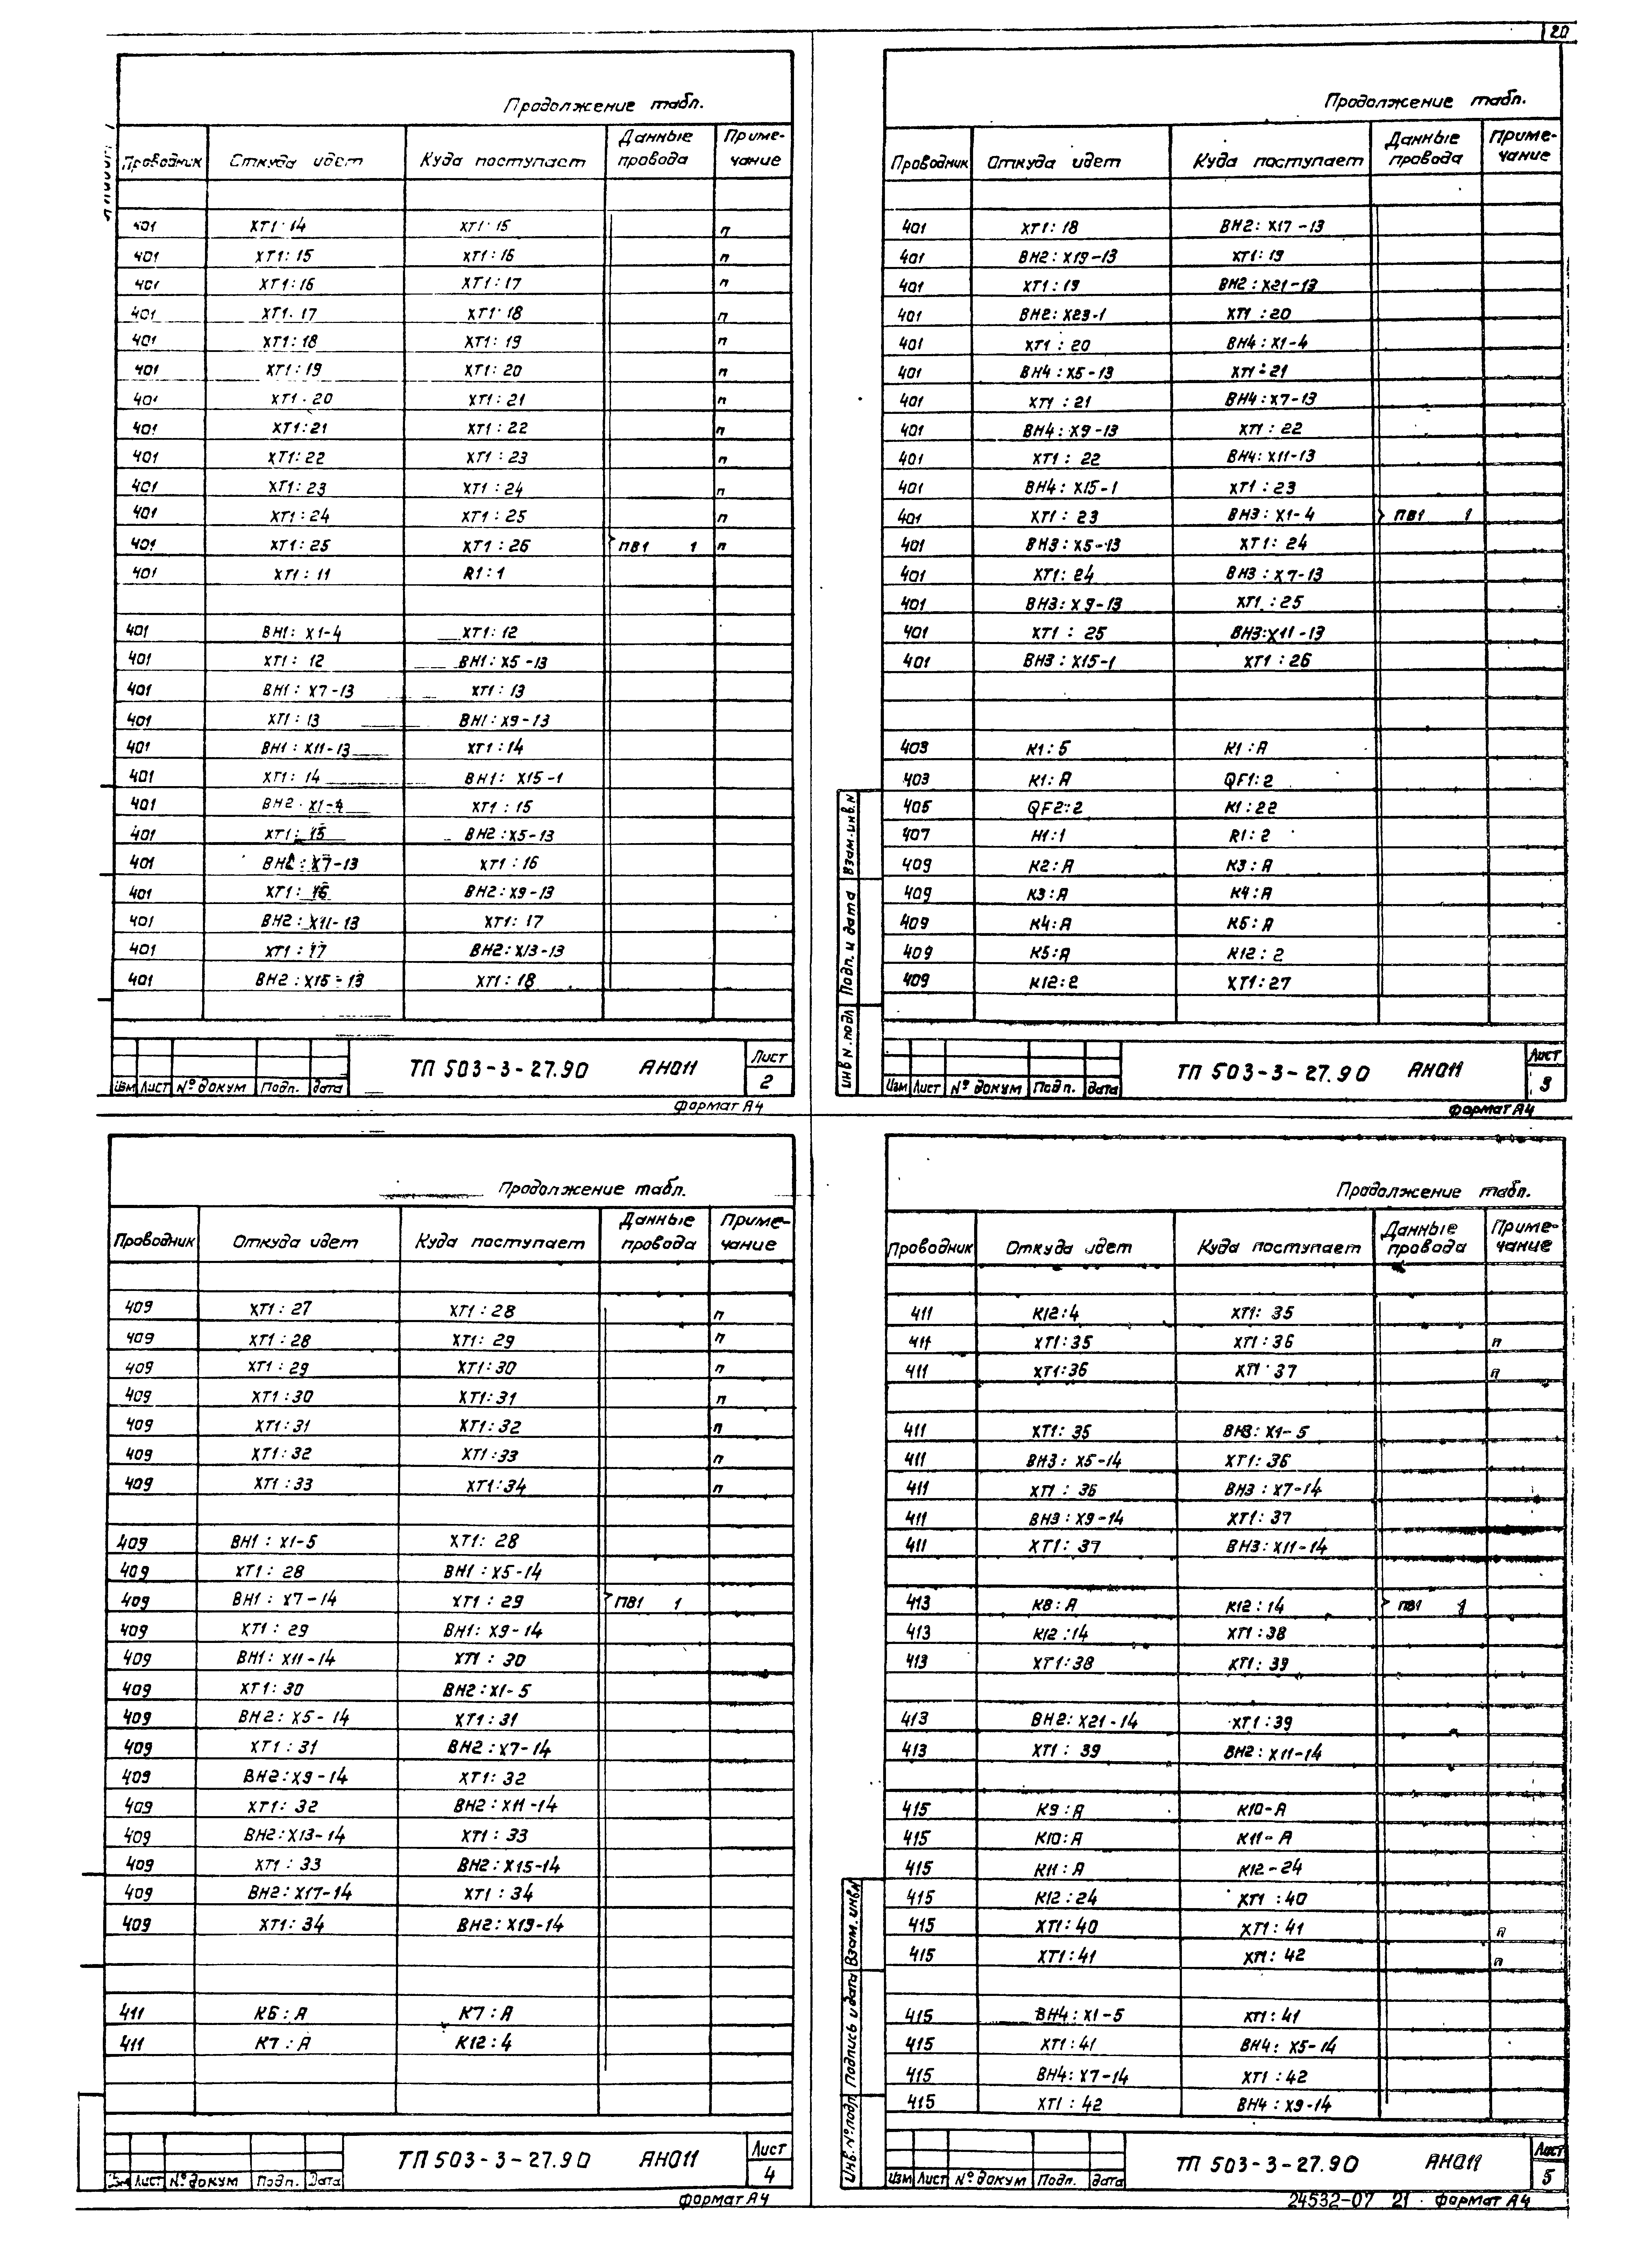 20
Продолжение табл.
Проводник Откуда идет Куда поступает Данные провода Приме-чание
401 XT1:14 XT1:15 п
401 XT1:15 XT1:16 п
401 XT1:16 XT1:17 п
401 XT1:17 XT1:18 п
401 XT1:18 XT1:19 п
401 XT1:19 XT1:20 п
401 XT1:20 XT1:21 п
401 XT1:21 XT1:22 п
401 XT1:22 XT1:23 п
401 XT1:23 XT1:24 п
401 XT1:24 XT1:25 п
401 XT1:25 XT1:26 ПВ1 1 п
401 XT1:11 R1:1
401 ВН1:X1-4 XT1:12
401 XT1:12 ВН1:X5-13
401 ВН1:X7-13 XT1:13
401 XT1:13 ВН1:X9-13
401 ВН1:X11-13 XT1:14
401 XT1:14 ВН1:X15-1
401 ВН2:X1-4 XT1:15
401 XT1:15 ВН2:X5-13
401 ВН2:X7-13 XT1:16
401 XT1:16 ВН2:X9-13
401 ВН2:X11-13 XT1:17
401 XT1:17 ВН2:X13-13
401 ВН2:X15-13 XT1:18
Изм Лист № докум Подп. Дата
ТП 503-3-27.90 АНО11
Лист 2
Формат А4
Продолжение табл.
Проводник Откуда идет Куда поступает Данные провода Приме-чание
401 XT1:18 ВН2:X17-13
401 ВН2:X19-13 XT1:19
401 XT1:19 ВН2:X21-13
401 ВН2:X23-1 XT1:20
401 XT1:20 ВН4:X1-4
401 ВН4:X5-13 XT1:21
401 XT1:21 ВН4:X7-13
401 ВН4:X9-13 XT1:22
401 XT1:22 ВН4:X11-13
401 ВН4:X15-1 XT1:23
401 XT1:23 ВН3:X1-4 ПВ1 1
401 ВН3:X5-13 XT1:24
401 XT1:24 ВН3:X7-13
401 ВН3:X9-13 XT1:25
401 XT1:25 ВН3:X11-13
401 ВН3:X15-1 XT1:26
403 K1:Б K1:А
403 K1:А QF1:2
405 QF2:2 K1:22
407 H1:1 R1:2
409 K2:А K3:А
409 K3:А K4:А
409 K4:А K5:А
409 K5:А K12:2
409 K12:2 XT1:27
Инв N.подл Подп. и дата Взам.инв.N
Изм Лист № докум Подп. Дата
ТП 503-3-27.90 АНО11
Лист 3
Формат А4
Продолжение табл.
Проводник Откуда идет Куда поступает Данные провода Приме-чание
409 XT1:27 XT1:28 п
409 XT1:28 XT1:29 п
409 XT1:29 XT1:30 п
409 XT1:30 XT1:31 п
409 XT1:31 XT1:32 п
409 XT1:32 XT1:33 п
409 XT1:33 XT1:34 п
409 ВН1:X1-5 XT1:28
409 XT1:28 ВН1:X5-14
409 ВН1:X7-14 XT1:29 ПВ1 1
409 XT1:29 ВН1:X9-14
409 ВН1:X11-14 XT1:30
409 XT1:30 ВН2:X1-5
409 ВН2:X5-14 XT1:31
409 XT1:31 ВН2:X7-14
409 ВН2:X9-14 XT1:32
409 XT1:32 ВН2:X11-14
409 ВН2:X13-14 XT1:33
409 XT1:33 ВН2:X15-14
409 ВН2:X17-14 XT1:34
409 XT1:34 ВН2:X19-14
411 K6:А K7:А
411 K7:А K12:4
Изм Лист № докум Подп. Дата
ТП 503-3-27.90 АНО11
Лист 4
Формат А4
Продолжение табл.
Проводник Откуда идет Куда поступает Данные провода Приме-чание
411 K12:4 XT1:35
411 XT1:35 XT1:36 п
411 XT1:36 XT1:37 п
411 XT1:35 ВН3:X1-5
411 ВН3:X5-14 XT1:36
411 XT1:36 ВН3:X7-14
411 ВН3:X9-14 XT1:37
411 XT1:37 ВН3:X11-14
413 K8:А K12:14 ПВ1 1
413 K12:14 XT1:38
413 XT1:38 XT1:39
413 ВН2:X21-14 XT1:39
413 XT1:39 ВН2:X11-14
415 K9:А K10-А
415 K10:А K11-А
415 K11:А K12-24
415 K12:24 XT1:40
415 XT1:40 XT1:41 п
415 XT1:41 XT1:42 п
415 ВН4:X1-5 XT1:41
415 XT1:41 ВН4:X5-14
415 ВН4:X7-14 XT1:42
415 XT1:42 ВН4:X9-14
Инв.№подл. Подпись и дата Взам.инв№
Изм Лист № докум Подп. Дата
ТП 503-3-27.90 АНО11
Лист 5
24532-07 21 Формат А4